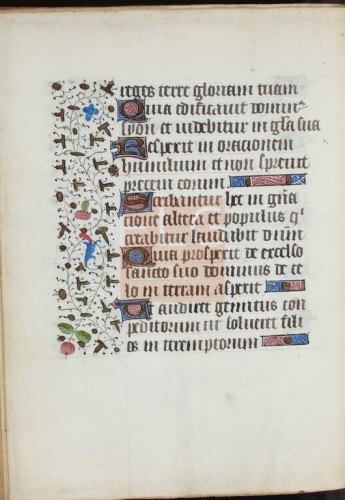 reges terre gloriam tuam
Quia edificauit domin⁹
syon et uidebitur in gl̃a sua
Respexit in orationem
humilium et non spreuit
precem eorum
Scribantur hec in gñа
tione altera et populus q̇
creabitur laudabit dñum
Quia prospexit de excelso
sancto suo dominus de ce
lo in terram aspexit
Ut audiret gemitus con
peditorum ut solueret fili
os interemptorum